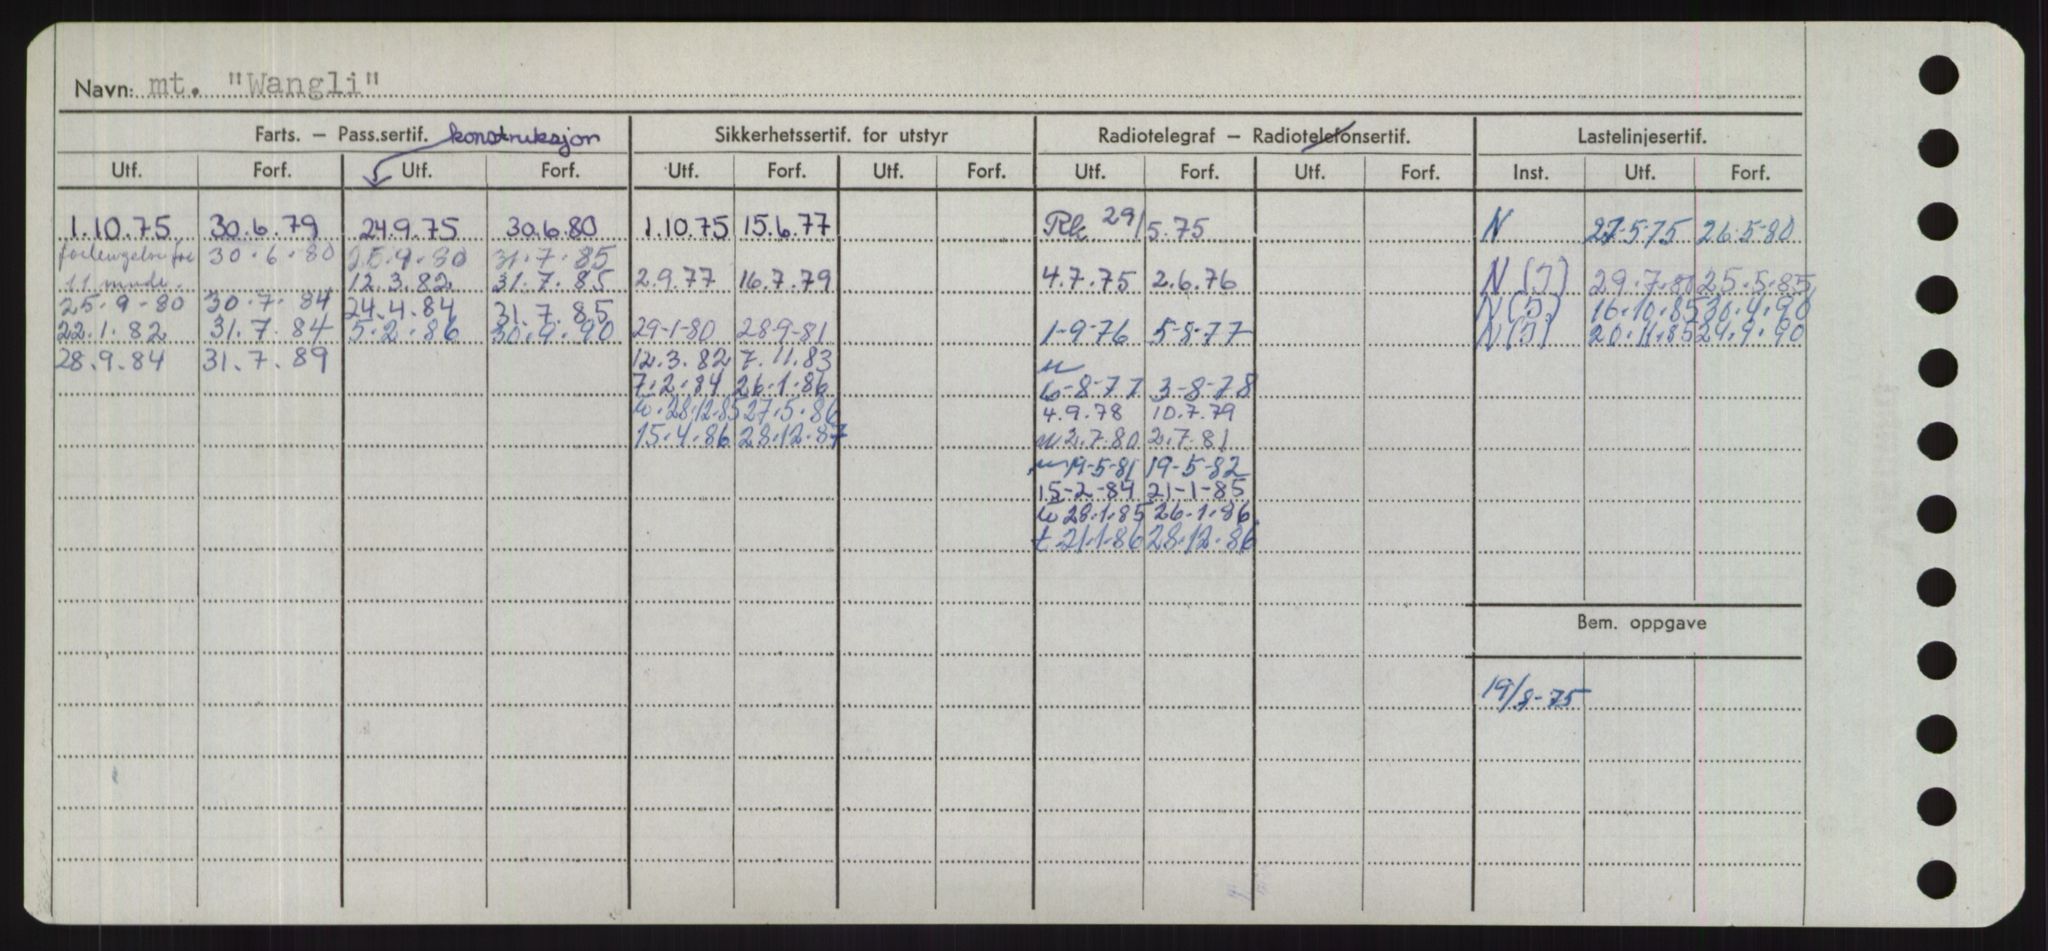 Navn: mt. "Wangli"
Farts. – Pass.sertif. konstruksjon Sikkerhetssertif. for utstyr Radiotelegraf – Radiotelefonsertif. Lastelinjesertif.
Utf. Forf. Utf. Forf. Utf. Forf. Utf. Forf. Utf. Forf. Utf. Forf. Inst. Utf. Forf.
1.10.75 30.6.79 24.9.75 30.6.80 1.10.75 15.6.77 Rk 29/5.75 N 27-5-75 26-5-80
forlengelse for 30.6.80 25.9.80 31.7.85
11 mndr. 12.3.82 31.7.85 2.9.77 16.7.79 4.7.75 2.6.76 N(I) 29.7.80 25.5.85
25.9-80 30.7.84 24.4.84 31.7.85 16.10.85 30.4.90
22.1.82 31.7.84 5.2.86 30.9.90 29-1-80 28-9-81 1-9-76 5-8-77 N(I) 20.11.85 24.9.90
28.9.84 31.7.89 12.3.82 7.11.83
7.2.84 26.1.86 6-8-77 3-8-78
28.12.85 27.5.86 4.9.78 10.7.79
15.4.86 28.12.87 2.7.80 2.7.81
19-5-81 19-5-82
15-2-84 21-1-85
28.1.85 26.1.86
t 21.1.86 28.12.86
Bem. oppgave
19/8-75